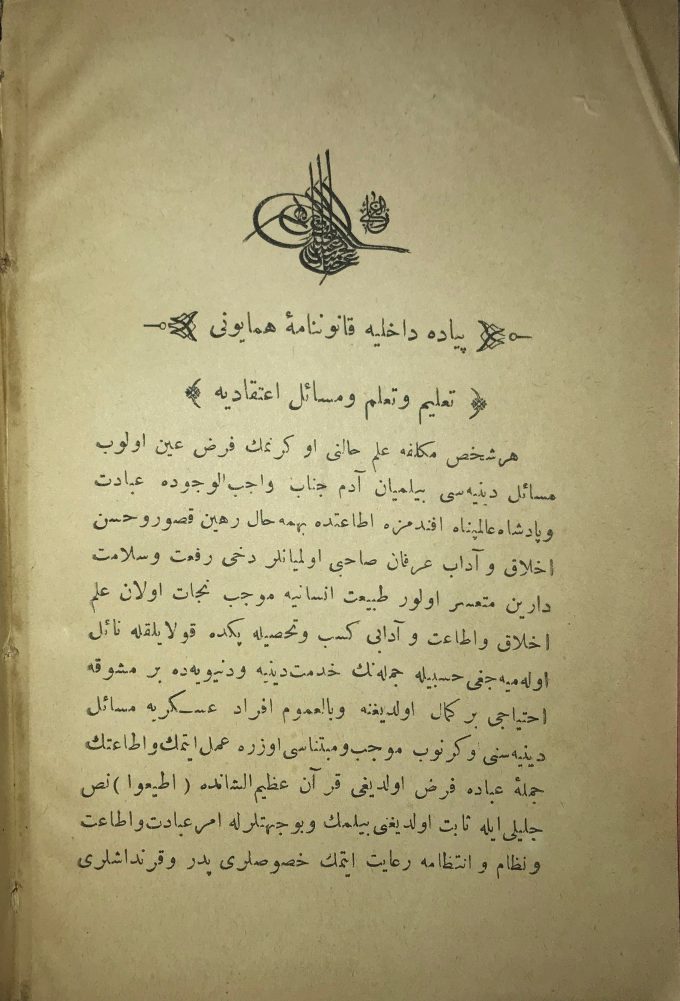 پیاده داخلیه قانوننامهٔ همایونی
تعلیم وتعلم ومسائل اعتقادیه
هرشخص مکلفه علم حالنی اوکرنمك فرض عین اولوب
مسائل دینیه‌سی بیلمیان آدم جناب واجب‌الوجوده عبادت
وپادشاه عالمپناه افندمزه اطاعتده بهمه‌حال رهین قصور وحسن
اخلاق و آداب عرفان صاحبی اولمیانلر دخی رفعت وسلامت
دارین متعسر اولور طبیعت انسانیه موجب نجات اولان علم
اخلاق واطاعت و آدابی کسب وتحصیله پکده قولایلقله نائل
اوله‌میه‌جغی حسبیله جمله‌نك خدمت دینیه ودنیویه‌ده بر مشوقه
احتیاجی بر کمال اولدیغنه وبالعموم افراد عسکریه مسائل
دینیه‌سنی وکرنوب موجب ومبتناسی اوزره عمل ایتمك واطاعتك
جملهٔ عباده فرض اولدیغی قرآن عظیم‌الشانده (اطیعوا) نص
جلیلی ایله ثابت اولدیغنی بیلمك وبوجهتلرله امر عبادت واطاعت
ونظام و انتظامه رعایت ایتمك خصوصلری پدر وقرنداشلری